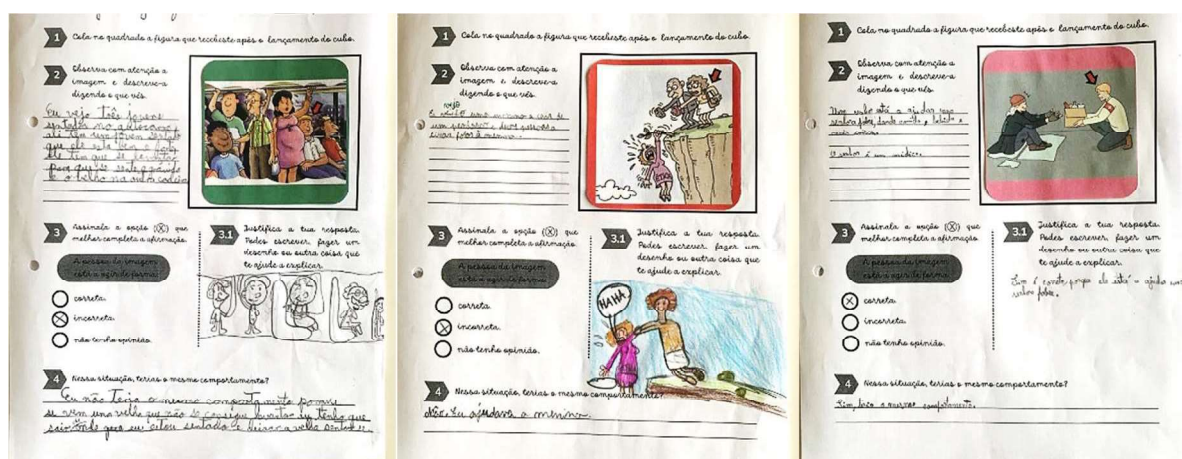 1 Cola no quadrado a figura que recebeste após o lançamento do cubo.
2 Observa com atenção a
imagem e descreve-a
dizendo o que vês.
Eu vejo três jovens
sentados no autocarro
até tem um jovem sentado
que ele está bem e forte
ele tem que se levantar
para que se sente a grávida
e o velho na outra cadeira
3 Assinala a opção (X) que
melhor completa a afirmação.
A pessoa da imagem
está a agir de forma:
correta.
incorreta.
não tenho opinião.
3.1 Justifica a tua resposta.
Podes escrever, fazer um
desenho ou outra coisa que
te ajude a explicar.
4 Nessa situação, terias o mesmo comportamento?
Eu não teria o mesmo comportamento porque
se vem uma velha que não se consegue levantar eu tenho que
sair onde eu estou sentado e deixar a velha sentar-se
1 Cola no quadrado a figura que recebeste após o lançamento do cubo.
2 Observa com atenção a
imagem e descreve-a
dizendo o que vês.
vejo
uma menina a cair de
um e duas pessoas a
menina.
ÉTICA
3 Assinala a opção (X) que
melhor completa a afirmação.
A pessoa da imagem
está a agir de forma:
correta.
incorreta.
não tenho opinião.
3.1 Justifica a tua resposta.
Podes escrever, fazer um
desenho ou outra coisa que
te ajude a explicar.
HAHA
4 Nessa situação, terias o mesmo comportamento?
Não. Eu ajudava a menina.
1 Cola no quadrado a figura que recebeste após o lançamento do cubo.
2 Observa com atenção a
imagem e descreve-a
dizendo o que vês.
senhor está a ajudar
senhora pobre, dando comida e bebida e
O senhor é um médico.
3 Assinala a opção (X) que
melhor completa a afirmação.
A pessoa da imagem
está a agir de forma:
correta.
incorreta.
não tenho opinião.
3.1 Justifica a tua resposta.
Podes escrever, fazer um
desenho ou outra coisa que
te ajude a explicar.
Sim é correta, porque ele está a ajudar um
senhor pobre.
4 Nessa situação, terias o mesmo comportamento?
Sim, teria o mesmo comportamento.